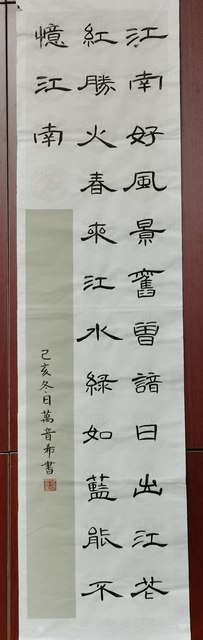 江南好風景舊曾諳日出江花
紅勝火春來江水綠如藍能不
憶江南
己亥冬日萬音希書